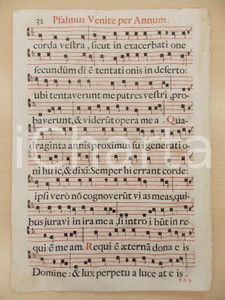 32 Psalmus Venite per Annum.
corda vestra, sicut in exacerbati one
secundùm di ē tentati onis in deserto:
ubi tentaverunt me patres vestri, pro-
baverunt, & viderūt opera me a. Qua-
draginta annis proximus fui generati o-
ni hu ic, & dixi: Semper hi errant corde:
ipsi verò nō cognoverūt vi as meas, qui-
bus juravi in ira me a, si intro i būt in re-
qui ē me am. Requi ē æternā dona e is
Domine: & lux perpetu a luce at e is.
iCharta